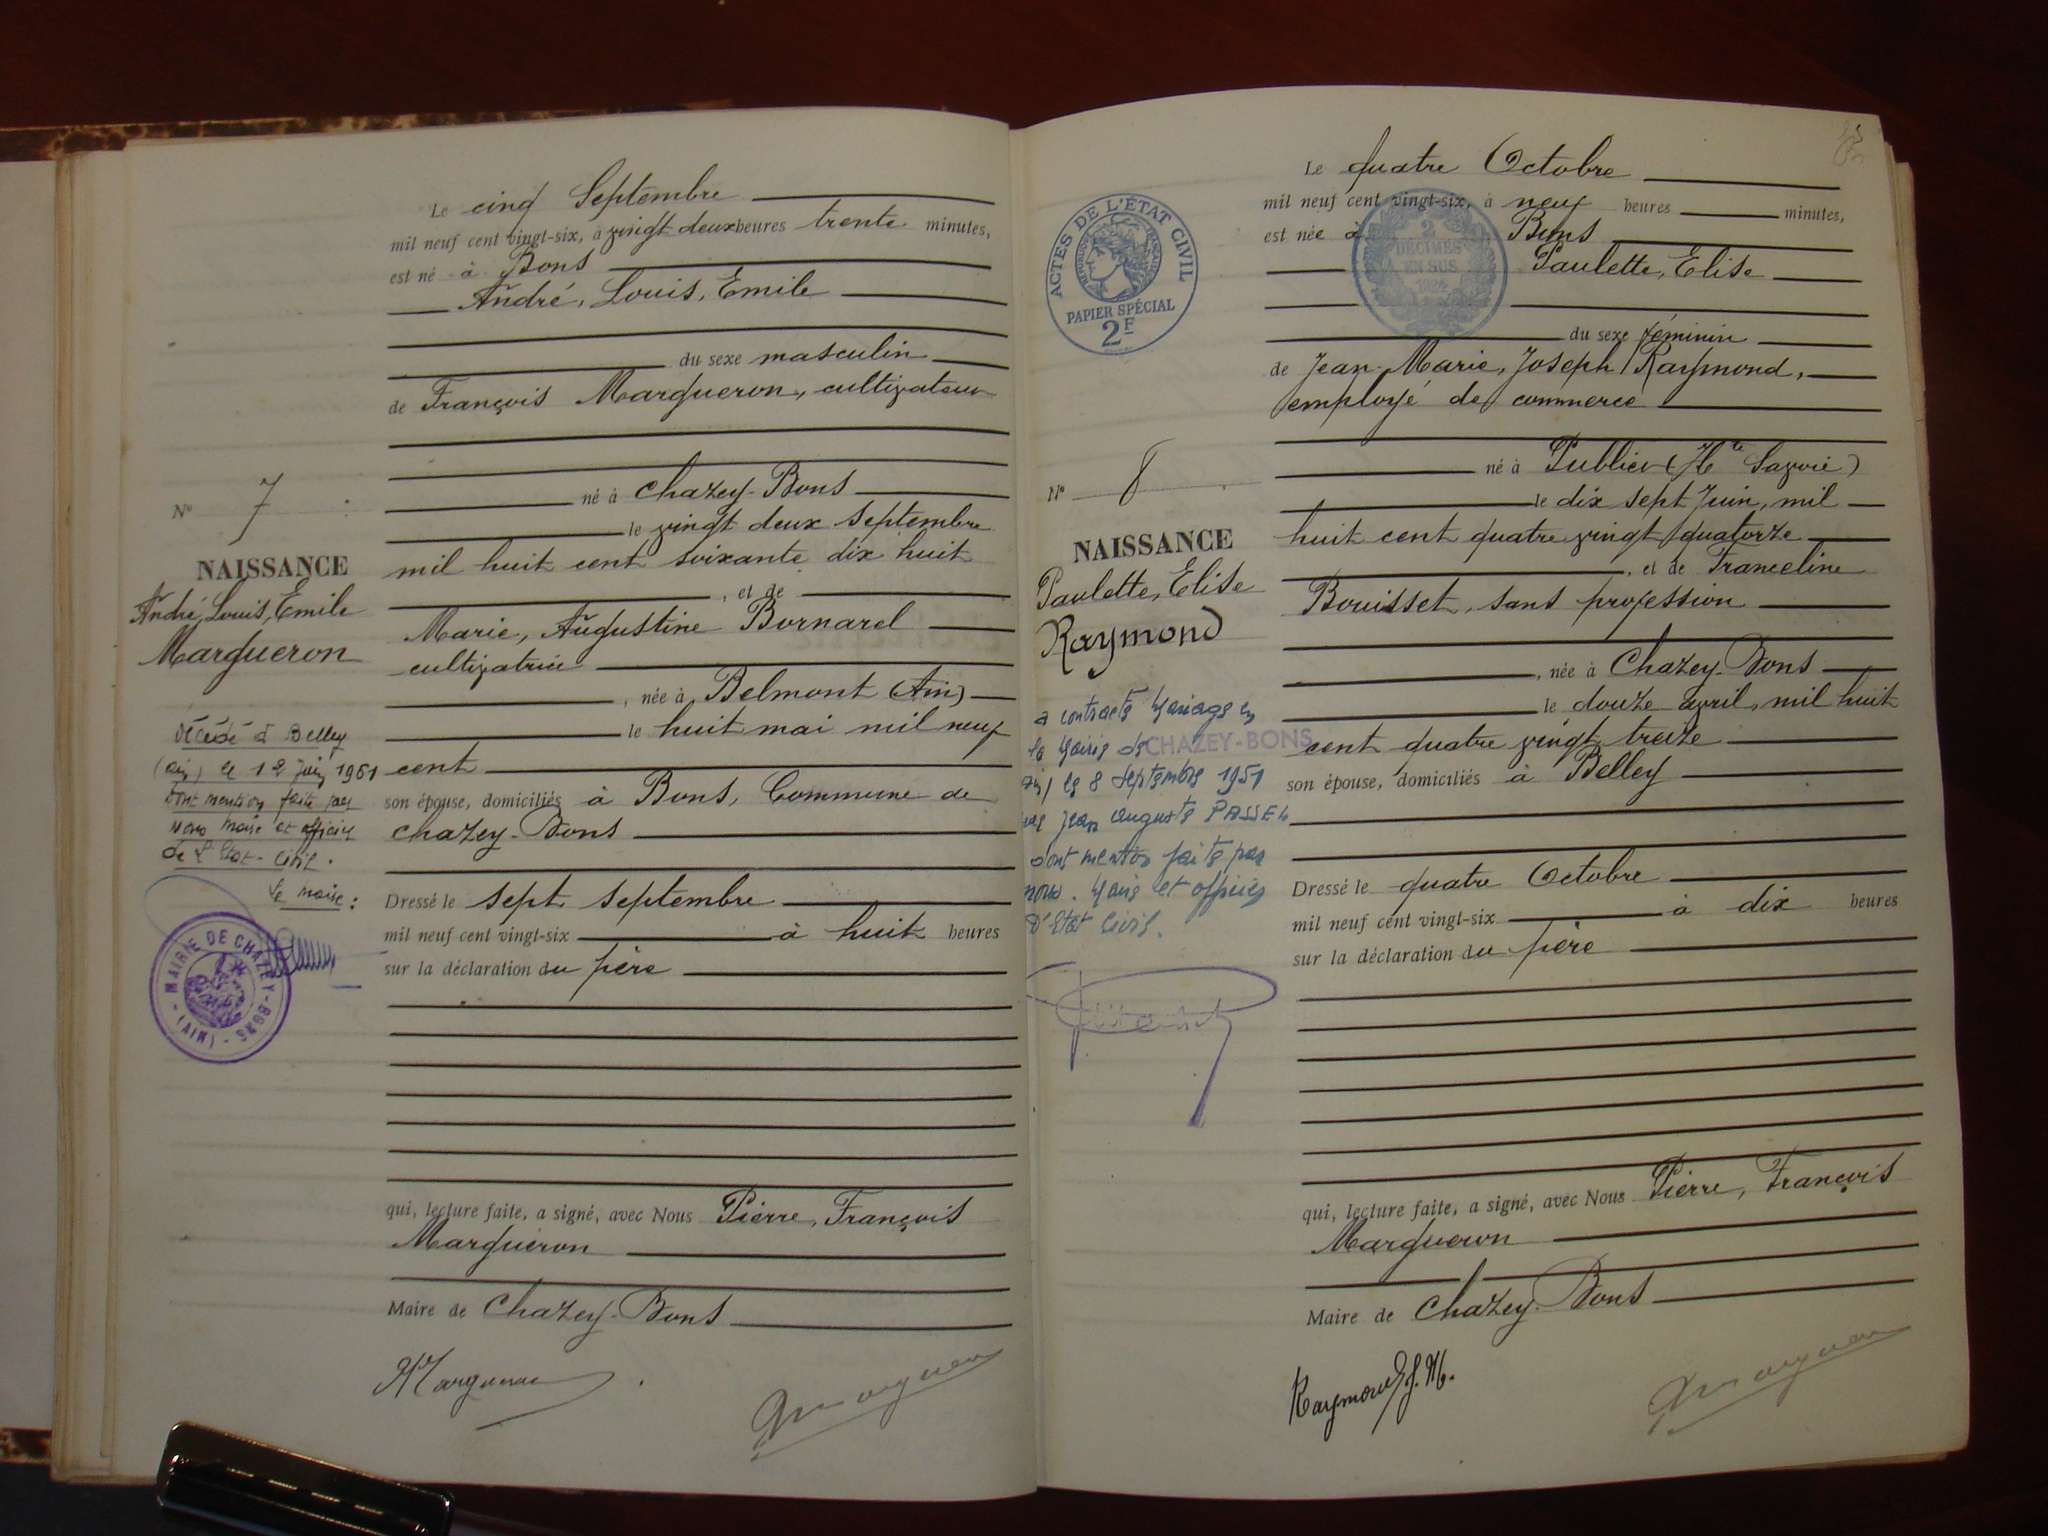 Le cinq Septembre
mil neuf cent vingt-six, à vingt deux heures trente minutes,
est né à Bons
André, Louis, Emile
du sexe masculin
de François Margueron, cultivateur
né à Chazey-Bons
le vingt deux septembre
mil huit cent soixante dix huit
, et de
Marie, Augustine Bornarel
cultivatrice
, née à Belmont (Ain)
le huit mai mil neuf
cent
son épouse, domiciliés à Bons, Commune de
Chazey-Bons
Dressé le sept septembre
mil neuf cent vingt-six à huit heures
sur la déclaration du père
qui, lecture faite, a signé, avec Nous Pierre, François
Margueron
Maire de Chazey-Bons
Margueron
N° 7
NAISSANCE
André, Louis, Emile
Margueron
Décédé à Belley
(ain) le 12 Juin 1951
dont mention faite par
nous maire et officier
de l'Etat-Civil.
Le maire :
MAIRIE DE CHAZEY-BONS
(AIN)
Le quatre Octobre
mil neuf cent vingt-six, à neuf heures minutes,
est née à Bons
Paulette, Elise
du sexe féminin
de Jean-Marie, Joseph Raymond,
employé de commerce
né à Publier (Hte Savoie)
le dix sept Juin, mil
huit cent quatre vingt quatorze
, et de Franceline
Bouisset, sans profession
, née à Chazey-Bons
le douze avril, mil huit
cent quatre vingt treize
son épouse, domiciliés à Belley
Dressé le quatre Octobre
mil neuf cent vingt-six à dix heures
sur la déclaration du père
qui, lecture faite, a signé, avec Nous Pierre, François
Margueron
Maire de Chazey-Bons
Raymond J. M.
ACTES DE L'ÉTAT CIVIL
RÉPUBLIQUE FRANÇAISE
PAPIER SPÉCIAL
2F
2
DÉCIMES
EN SUS
N° 8
NAISSANCE
Paulette, Elise
Raymond
a contracté Mariage en
la Mairie de CHAZEY-BONS
le 8 Septembre 1951
Jean Auguste PASSE
dont mention faite par
nous. Maire et officier
d'Etat Civil.